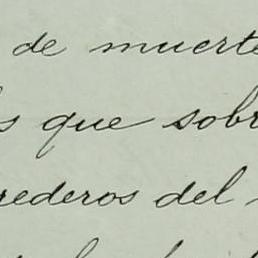 de muerte
s que sobr
rederos del